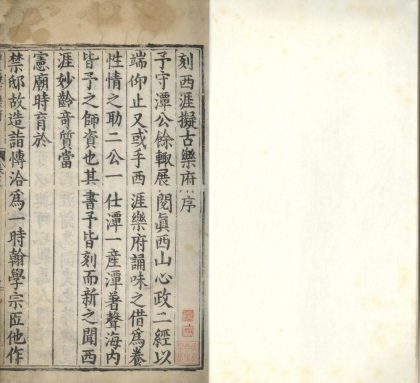 刻西涯擬古樂府序
予守潭公餘輙展閱眞西山心政二經以
端仰止又或手西涯樂府誦味之借爲養
性情之助二公一仕潭一産潭著聲海內
皆予之師資也其書予皆刻而新之聞西
涯妙齡奇質當
憲廟時育於
禁邸故造詣慱洽爲一時翰學宗匠他作